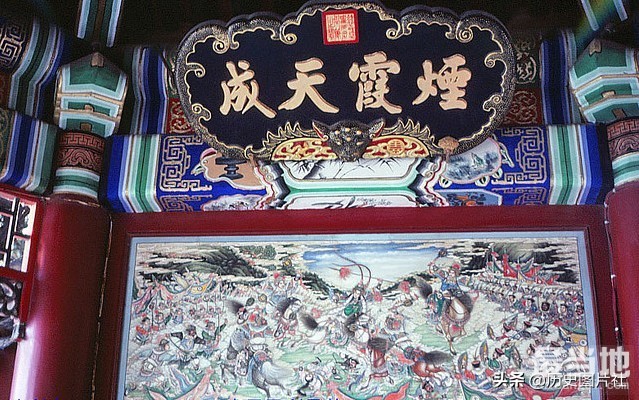 煙霞天成
头条 @历史图片社